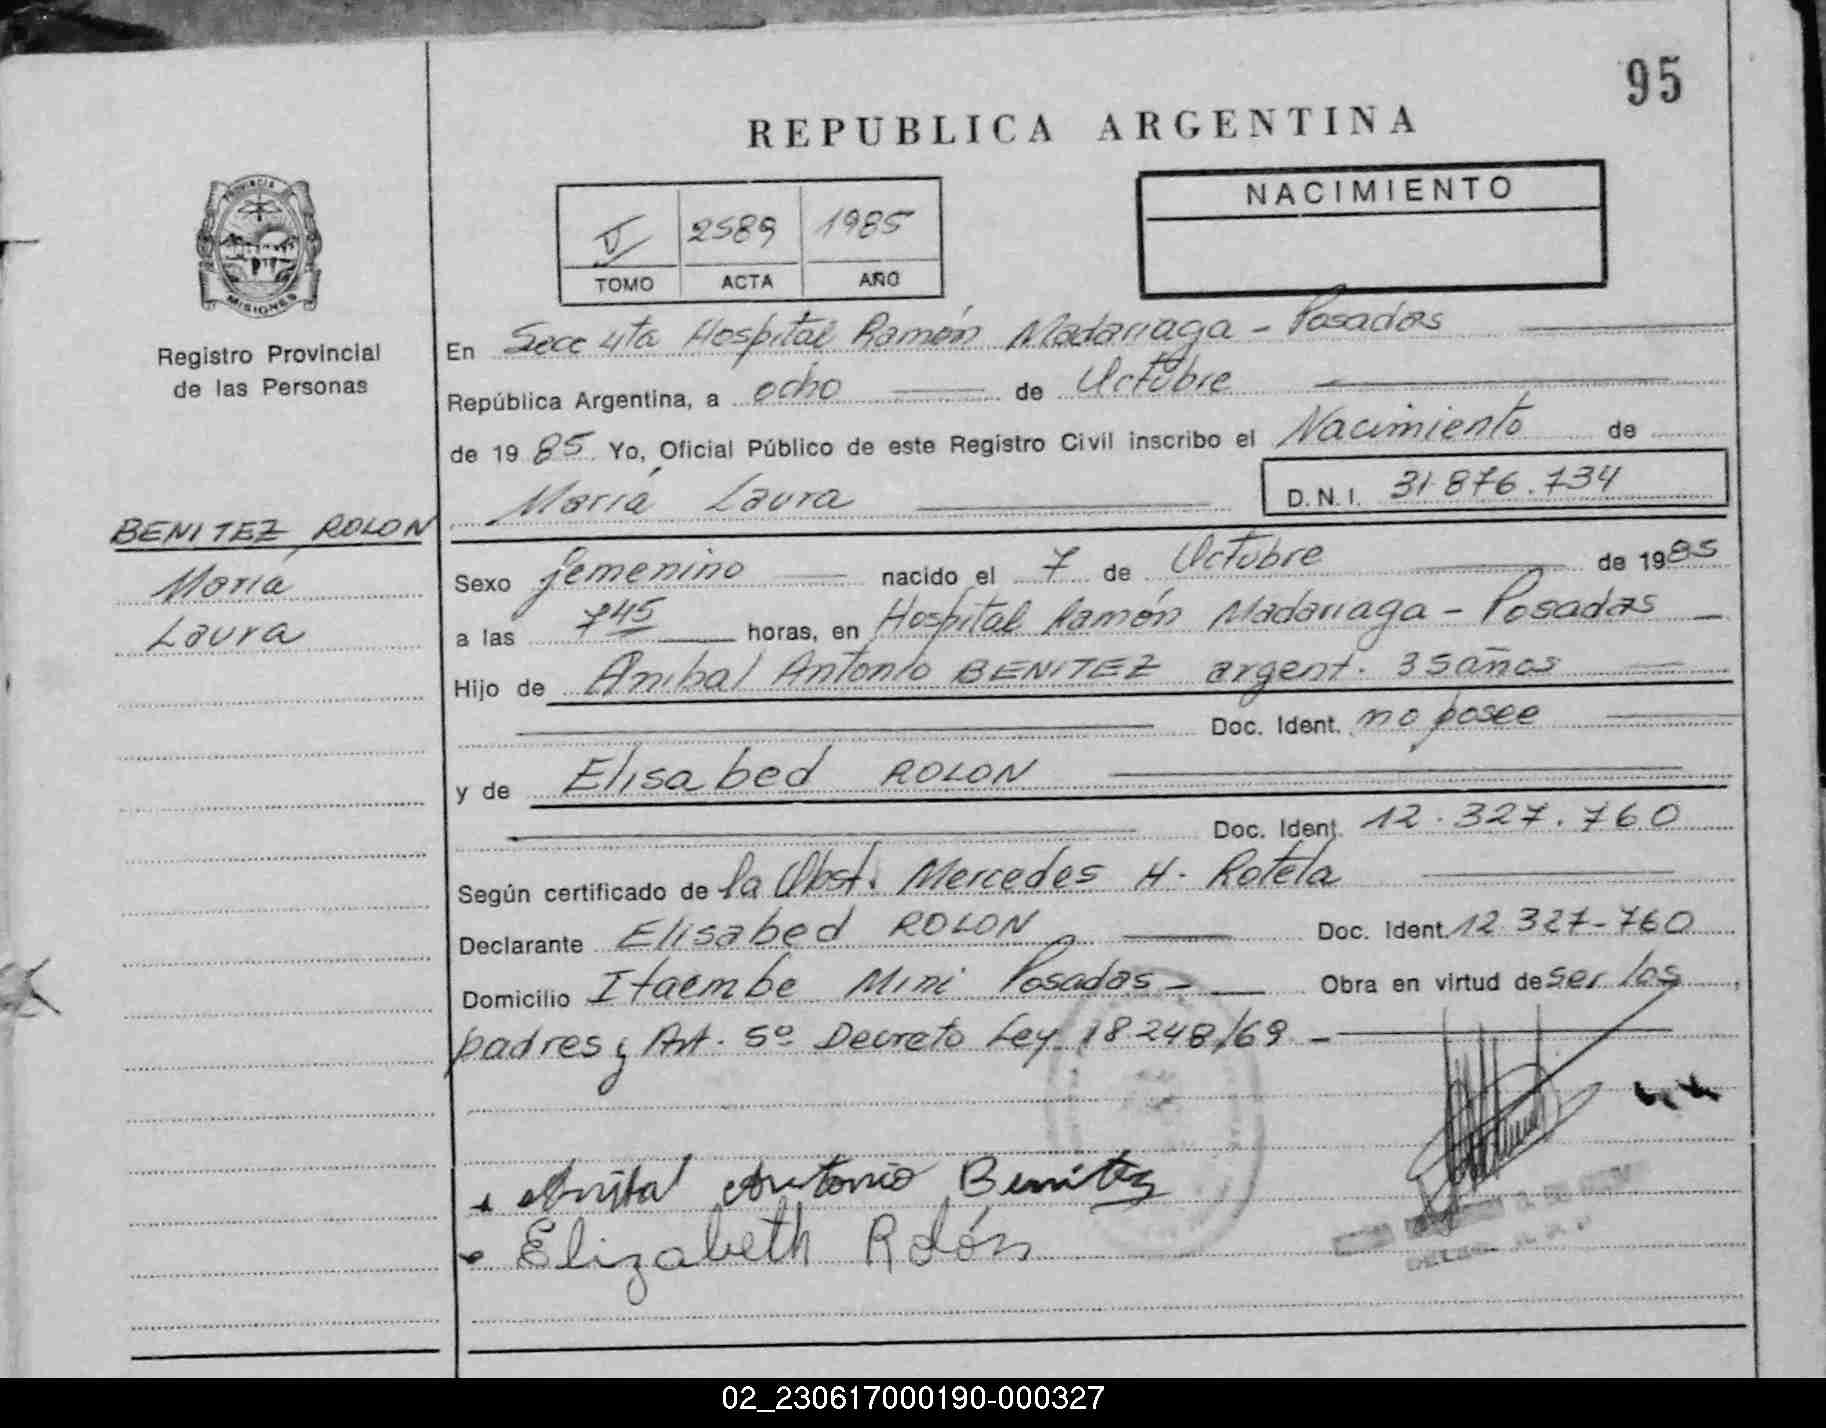 95
REPUBLICA ARGENTINA
PROVINCIA
MISIONES
Registro Provincial
de las Personas
V 2589 1985
TOMO ACTA AÑO
NACIMIENTO
En Secc 4ta Hospital Ramón Madariaga - Posadas
República Argentina, a ocho de Octubre
de 1985 Yo, Oficial Público de este Registro Civil inscribo el Nacimiento de
María Laura D.N.I. 31.876.734
BENITEZ ROLON
María
Laura
Sexo femenino nacido el 7 de Octubre de 1985
a las 745 horas, en Hospital Ramón Madariaga - Posadas
Hijo de Anibal Antonio BENITEZ argent. 35 años
Doc. Ident. no posee
y de Elisabed ROLON
Doc. Ident. 12.327.760
Según certificado de la Obst. Mercedes H. Rotela
Declarante Elisabed ROLON Doc. Ident. 12 327-760
Domicilio Itaembe Mini Posadas - Obra en virtud de ser los
padres y Art. 5º Decreto Ley 18.248/69 -
Anibal Antonio Benitez
Elizabeth Rolón
02_230617000190-000327